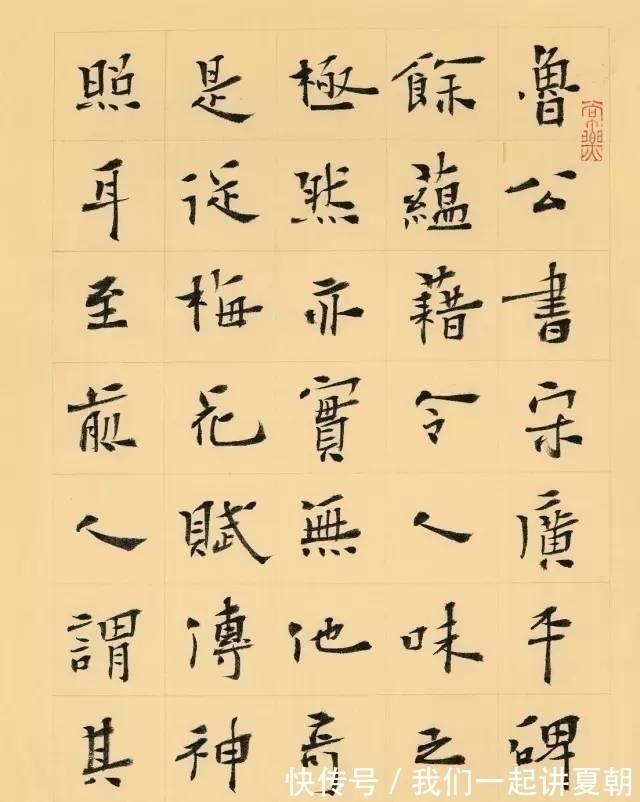 魯公書宋廣平碑
餘蘊藉令人味之
極然亦實無他奇
是從梅花賦傳神
照耳至前人謂其
快传号 / 我们一起讲夏朝